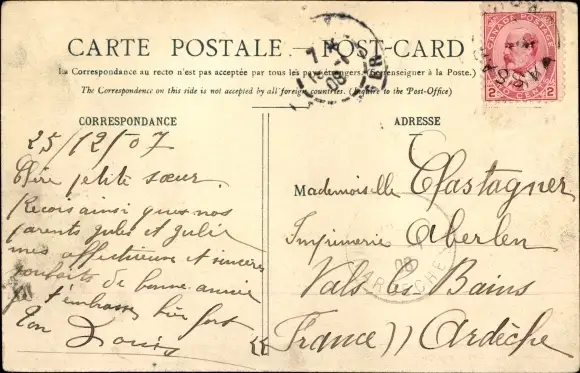 CARTE POSTALE — POST-CARD
La Correspondance au recto n'est pas acceptée par tous les pays étrangers. (Se renseigner à la Poste.)
The Correspondence on this side is not accepted by all foreign countries. (Inquire to the Post-Office)
CANADA POSTAGE
2 CENTS 2
CORRESPONDANCE
25/12/07
Chère petite sœur.
Reçois ainsi que nos
parents Jules et Julie
mes affectueux et sincères
souhaits de bonne année
t'embrasse bien fort
Ton Louis
ADRESSE
Mademoiselle Clastagner
Imprimerie Aberlen
Vals les Bains
(France)) Ardèche
08